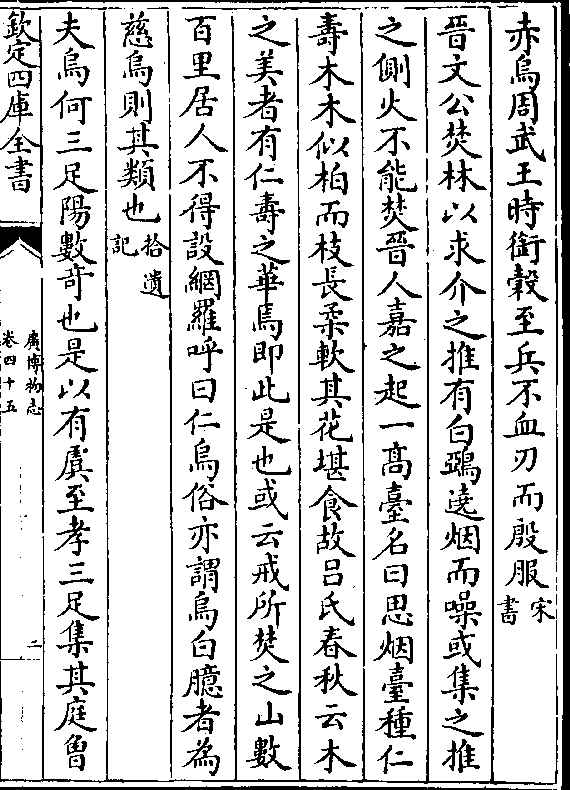 赤烏周武王時銜穀至兵不血刃而殷服宋書
晉文公焚林以求介之推有白鵶遶烟而噪或集之推
之側火不能焚晉人嘉之起一髙臺名曰思烟臺種仁
壽木木似柏而枝長柔軟其花堪食故吕氏春秋云木
之美者有仁壽之華焉即此是也或云戒所焚之山數
百里居人不得設網羅呼曰仁烏俗亦謂烏白臆者為
慈烏則其類也拾遺記
夫烏何三足陽數竒也是以有虞至孝三足集其庭曾
欽定四庫全書
廣博物志
卷四十五
二